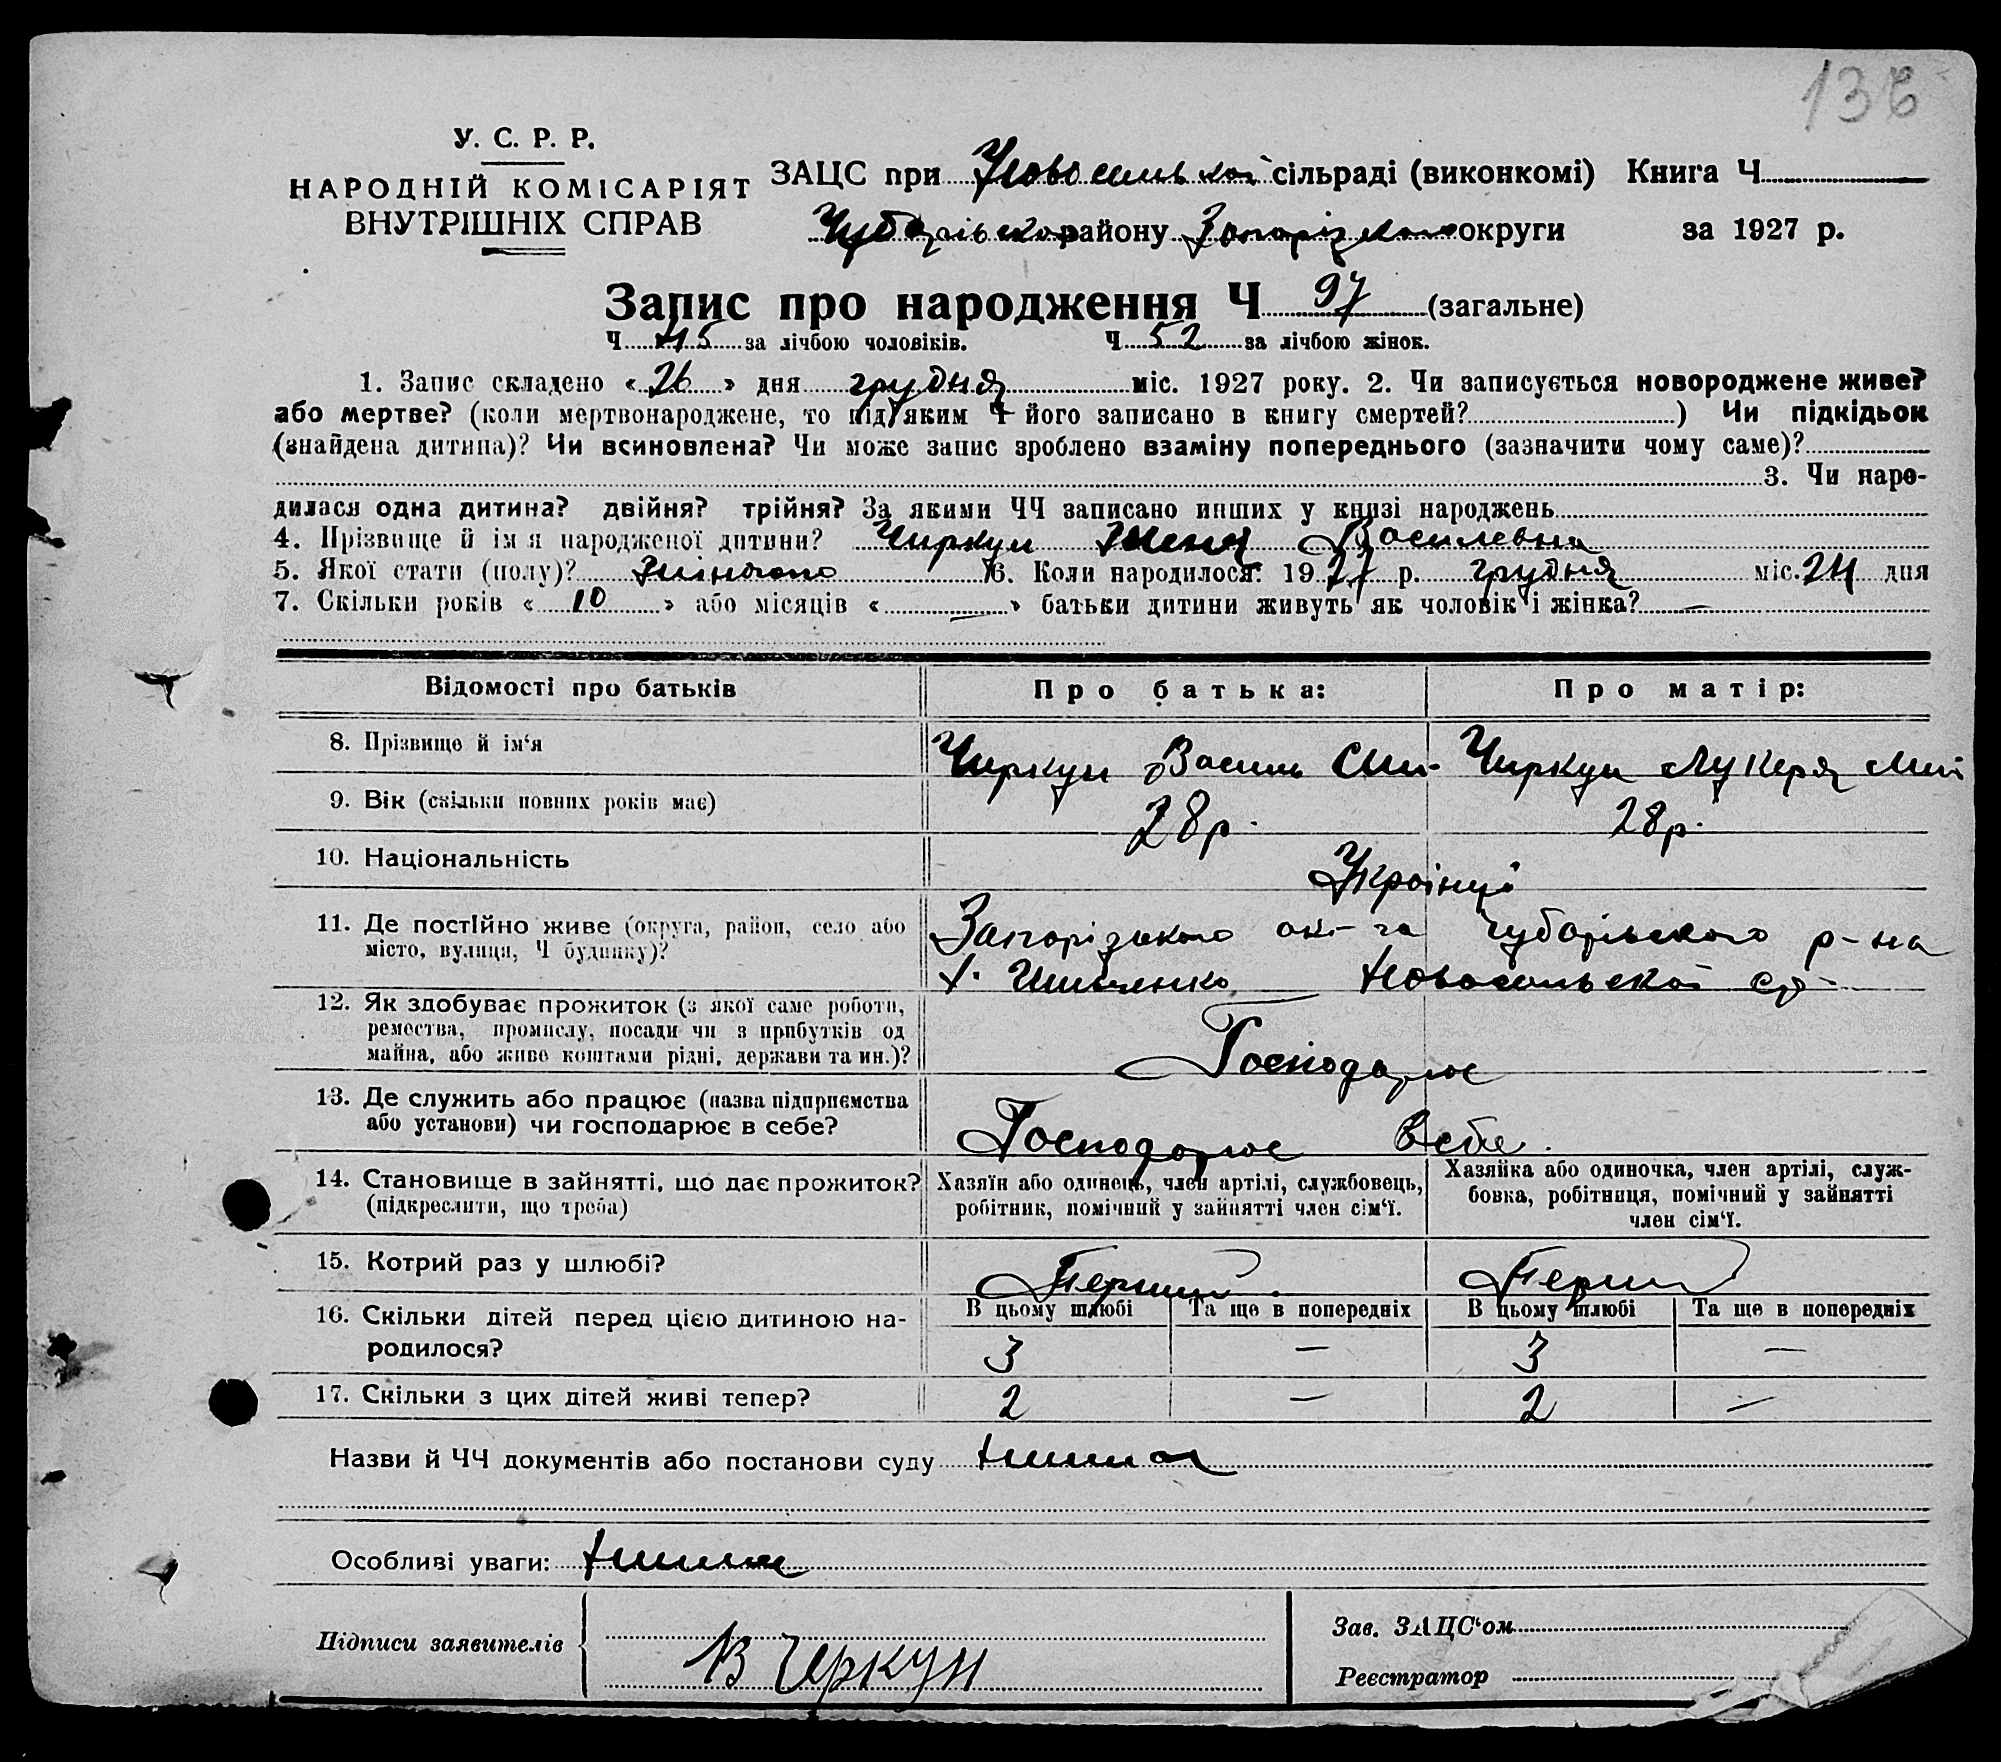 136
У. С. Р. Р.
НАРОДНІЙ КОМІСАРІЯТ
ВНУТРІШНІХ СПРАВ
ЗАЦС при Новосельской сільраді (виконкомі) Книга Ч
Чубарівського району Запорізького округи за 1927 р.
Запис про народження Ч 97 (загальне)
Ч 45 за лічбою чоловіків. Ч 52 за лічбою жінок.
1. Запис складено « 26 » дня грудня міс. 1927 року. 2. Чи записується новороджене живе?
або мертве? (коли мертвонароджене, то під яким Ч його записано в книгу смертей? ) Чи підкідьок
(знайдена дитина)? Чи всиновлена? Чи може запис зроблено взаміну попереднього (зазначити чому саме)?
3. Чи наро-
дилася одна дитина? двійня? трійня? За якими ЧЧ записано инших у книзі народжень
4. Прізвище й ім я народженої дитини? Чиркун Женя Василевна
5. Якої стати (полу)? Жіночого 6. Коли народилося: 1927 р. грудня міс. 24 дня
7. Скільки років « 10 » або місяців « — » батьки дитини живуть як чоловік і жінка? —
Відомості про батьків Про батька: Про матір:
8. Прізвище й ім‘я Чиркун Василь Чиркун Лукеря
9. Вік (скільки повних років має) 28 р. 28 р.
10. Національність Українці
11. Де постійно живе (округа, район, село або Запорізького окр-га Чубарівського р-на
місто, вулиця, Ч будинку)? х. Новосельской
12. Як здобуває прожиток (з якої саме роботи,
ремества, промислу, посади чи з прибутків од Господарює
майна, або живе коштами рідні, держави та ин.)?
13. Де служить або працює (назва підприємства
або установи) чи господарює в себе? Господарює в себе.
14. Становище в зайнятті, що дає прожиток? Хазяїн або одинець, член артілі, службовець, Хазяйка або одиночка, член артілі, служ-
(підкреслити, що треба) робітник, помічний у зайнятті член сім‘ї. бовка, робітниця, помічний у зайнятті
член сім‘ї.
15. Котрий раз у шлюбі? Перший Перший
16. Скільки дітей перед цією дитиною на- В цьому шлюбі Та ще в попередніх В цьому шлюбі Та ще в попередніх
родилося? 3 — 3 —
17. Скільки з цих дітей живі тепер? 2 — 2 —
Назви й ЧЧ документів або постанови суду
Особливі уваги:
Підписи заявителів В Чиркун
Зав. ЗАЦС‘ом
Реєстратор